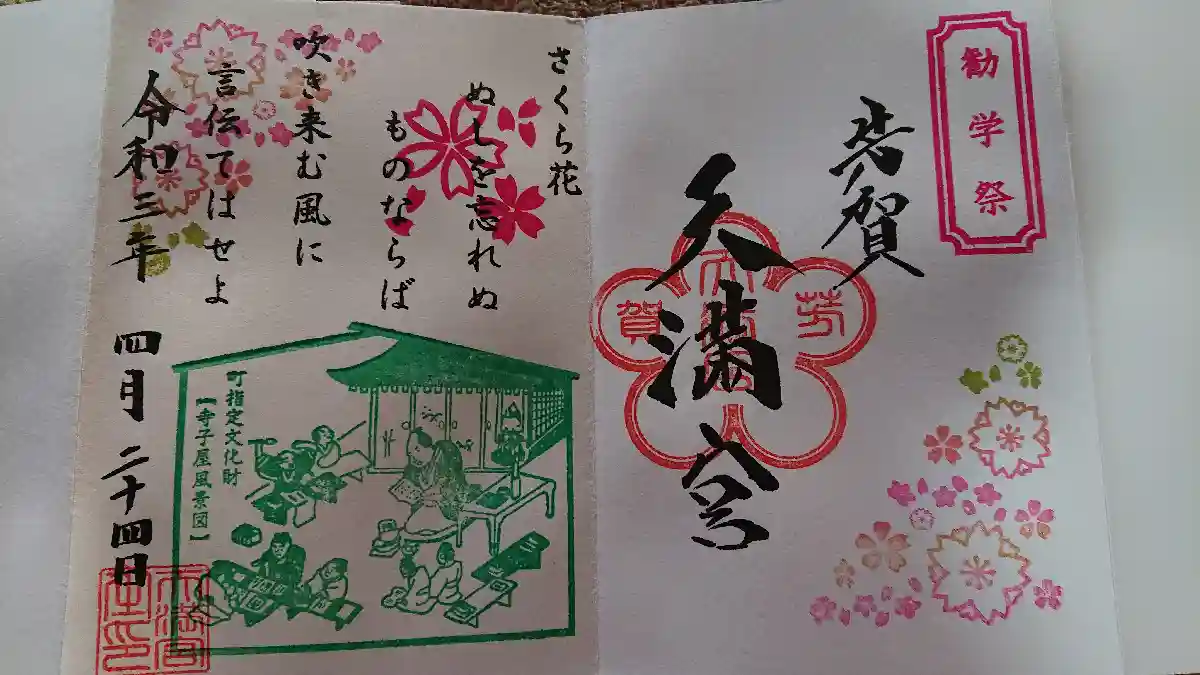 勧学祭
芳賀
天満宮
賀
芳
さくら花
ぬしを忘れぬ
ものならば
吹き来む風に
言伝てはせよ
令和三年 四月 二十四日
町指定文化財
【寺子屋風景図】